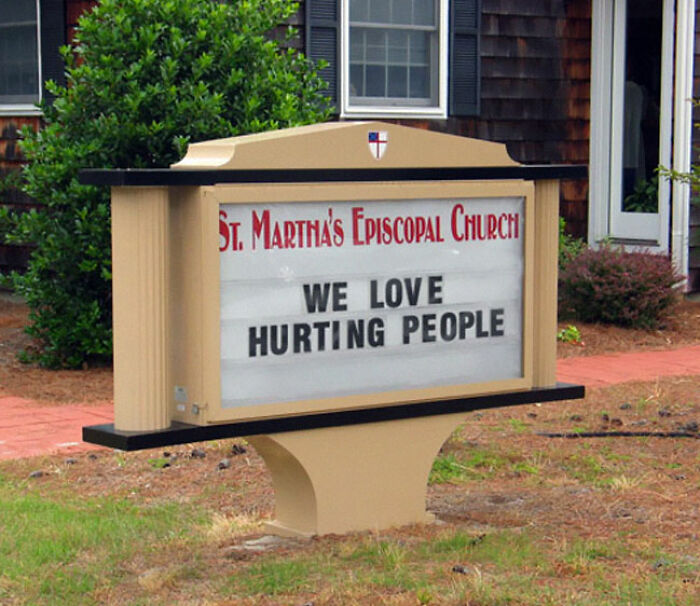 St. Martha's Episcopal Church
WE LOVE
HURTING PEOPLE